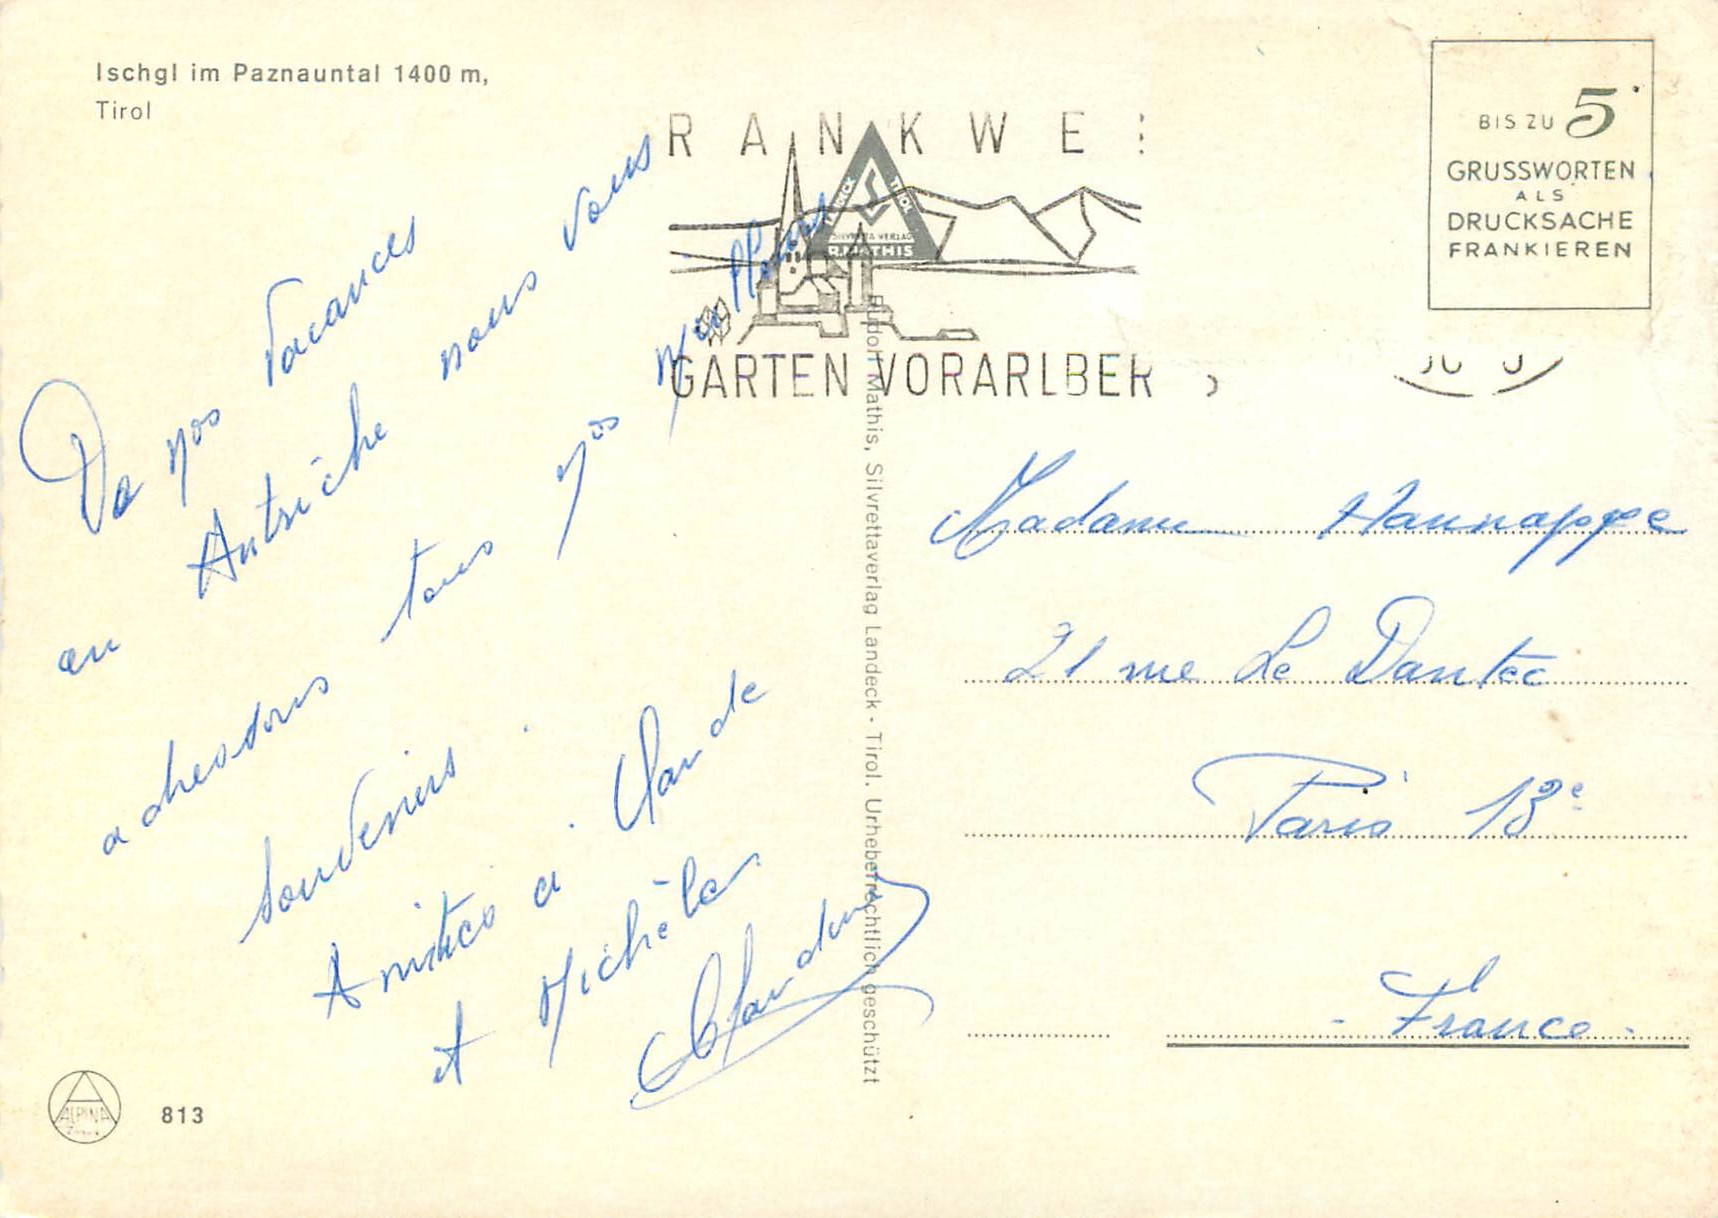 Ischgl im Paznauntal 1400 m,
Tirol
RANKWE
GARTEN VORARLBER
LANDECK TIROL
SILVRETTA-VERLAG
R.MATHIS
BIS ZU 5
GRUSSWORTEN
ALS
DRUCKSACHE
FRANKIEREN
De nos Vacances
en Autriche nous vous
adressons tous nos meilleurs
souvenirs.
Amitiés à Claude
et Michèle.
Rudolf Mathis, Silvrettaverlag Landeck - Tirol. Urheberrechtlich geschützt
Madame Hannappe
21 rue Le Dantec
Paris 13e
- France -
ALPINA
813